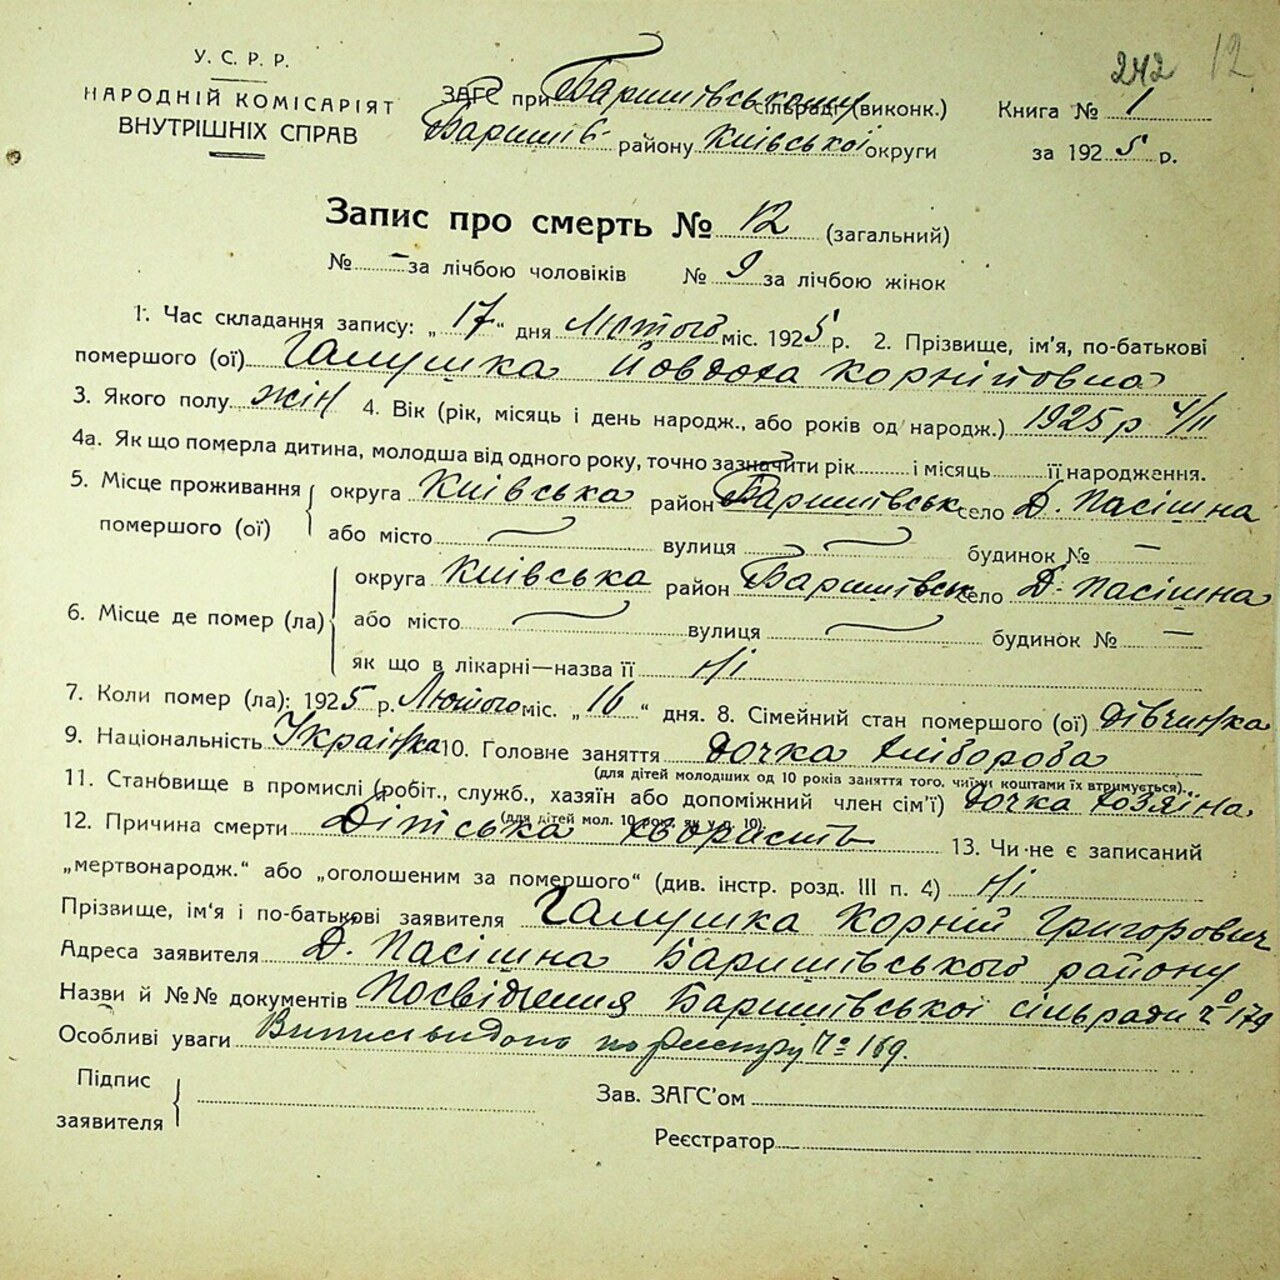 242 12
У. С. Р. Р.
НАРОДНІЙ КОМІСАРІЯТ
ВНУТРІШНІХ СПРАВ
ЗАГС при Баришівському сільраді (виконк.)
Баришів- району Київської округи
Книга № 1
за 1925 р.
Запис про смерть № 12 (загальний)
№ - за лічбою чоловіків № 9 за лічбою жінок
1. Час складання запису: „17“ дня Лютого міс. 1925 р. 2. Прізвище, ім’я, по-батькові
помершого (ої) Галушка Йовдоха Корнійовна
3. Якого полу жін 4. Вік (рік, місяць і день народж., або років од народж.) 1925 р 4/II
4а. Як що померла дитина, молодша від одного року, точно зазначити рік і місяць її народження.
5. Місце проживання помершого (ої) округа Київська район Баришівськ село Д. Пасішна
або місто вулиця будинок № —
6. Місце де помер (ла) округа Київська район Баришівськ село Д. Пасішна
або місто вулиця будинок № —
як що в лікарні—назва її Ні
7. Коли помер (ла): 1925 р. Лютого міс. „16“ дня. 8. Сімейний стан помершого (ої) дівчинка
9. Національність Українка 10. Головне заняття дочка хлібороба
(для дітей молодших од 10 років заняття того, чиїми коштами їх втримується)
11. Становище в промислі (робіт., служб., хазяїн або допоміжний член сім’ї) дочка хозяїна
(для дітей мол. 10 рокі. як у п. 10)
12. Причина смерти Дітська хворасть 13. Чи не є записаний
„мертвонародж.“ або „оголошеним за помершого“ (див. інстр. розд. III п. 4) Ні
Прізвище, ім’я і по-батькові заявителя Галушка Корній Григорович
Адреса заявителя Д. Пасішна Баришівського району
Назви й №№ документів Посвідчення Баришівської сільради № 179
Особливі уваги Витяг видано по реєстру № 169.
Підпис заявителя
Зав. ЗАГС’ом
Реєстратор